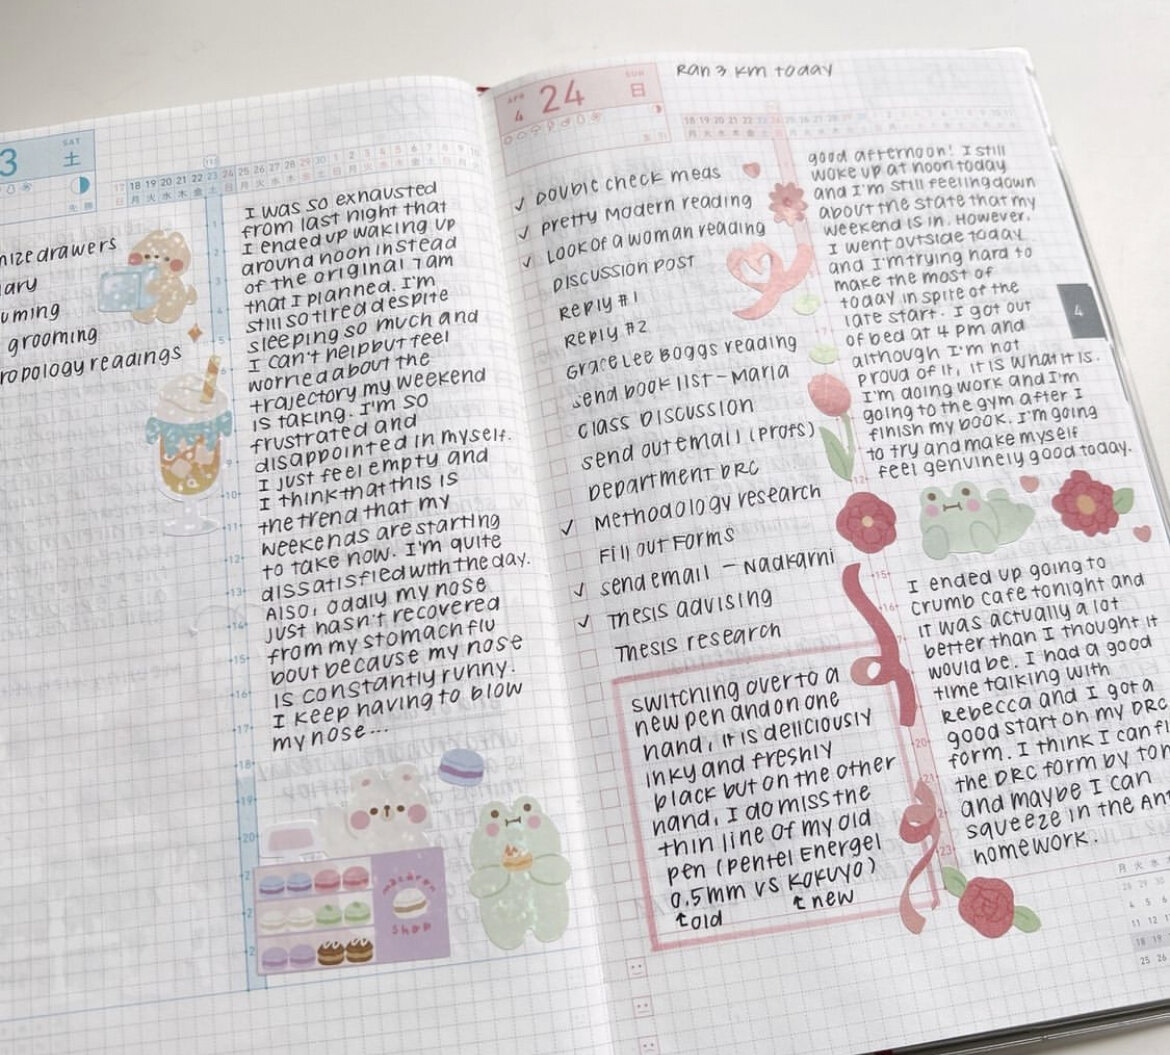 3
SAT
土
先勝
17 18 19 20 21 22 23 24 25 26 27 28 29 30 1 2 3 4 5 6 7 8 9 10
nize drawers
ary
uming
grooming
ropology readings
I was so exhausted
from last night that
I ended up waking up
around noon instead
of the original 7am
that I planned. I'm
still so tired despite
sleeping so much and
I can't help but feel
worried about the
trajectory my weekend
is taking. I'm so
frustrated and
disappointed in myself.
I just feel empty and
I think that this is
the trend that my
weekends are starting
to take now. I'm quite
dissatisfied with the day.
Also, oddly my nose
just hasn't recovered
from my stomach flu
bout because my nose
is constantly runny.
I keep having to blow
my nose...
macaron
shop
APR
4
24
SUN
日
Ran 3 km today
18 19 20 21 22 23 24 25 26 27 28 29 30
✓ Double check meas
✓ pretty modern reading
✓ Look of a woman reading
Discussion post
Reply #1
Reply #2
Grace Lee Boggs reading
send book list - Maria
class discussion
send out email (profs)
Department DRC
✓ Methodology research
Fill out forms
✓ send email - Nadkarni
✓ Thesis advising
Thesis research
switching over to a
new pen and on one
hand, it is deliciously
inky and freshly
black but on the other
hand, I do miss the
thin line of my old
pen (pentel Energel
0.5mm vs KOKUYO)
↑ old
↑ new
good afternoon! I still
woke up at noon today
and I'm still feeling down
about the state that my
weekend is in. However,
I went outside today
and I'm trying hard to
make the most of
today in spite of the
late start. I got out
of bed at 4 pm and
although I'm not
proud of it, it is what it is.
I'm doing work and I'm
going to the gym after I
finish my book. I'm going
to try and make myself
feel genuinely good today.
4
I ended up going to
crumb cafe tonight and
it was actually a lot
better than I thought it
would be. I had a good
time talking with
Rebecca and I got a
good start on my DRC
form. I think I can fi
the DRC form by ton
and maybe I can
squeeze in the Ant
homework.